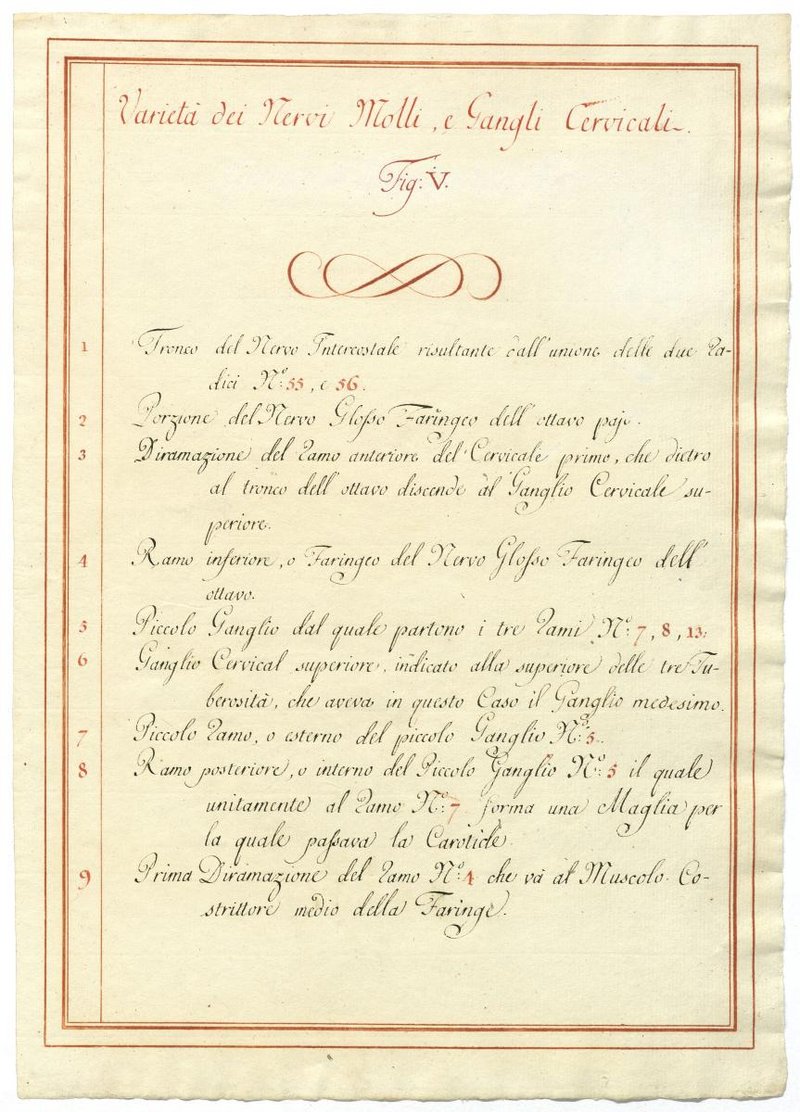 Varietà dei Nervi Molli, e Gangli Cervicali.
Fig: V.
1 Tronco del Nervo Intercostale risultante dall'unione delle due Ra-
dici N.º 55, e 56.
2 Porzione del Nervo Glosso Faringeo dell'ottavo pajo.
3 Diramazione del Ramo anteriore del Cervicale primo, che dietro
al tronco dell'ottavo discende al Ganglio Cervicale su-
periore.
4 Ramo inferiore, o Faringeo del Nervo Glosso Faringeo dell'
ottavo.
5 Piccolo Ganglio dal quale partono i tre Rami N.º 7, 8, 13.
6 Ganglio Cervical superiore, indicato alla superiore delle tre Tu-
berosità, che aveva in questo Caso il Ganglio medesimo.
7 Piccolo Ramo, o esterno del piccolo Ganglio N.º 5.
8 Ramo posteriore, o interno del Piccolo Ganglio N.º 5 il quale
unitamente al Ramo N.º 7 forma una Maglia per
la quale passava la Carotide.
9 Prima Diramazione del Ramo N.º 4 che và al Muscolo Co-
strittore medio della Faringe.